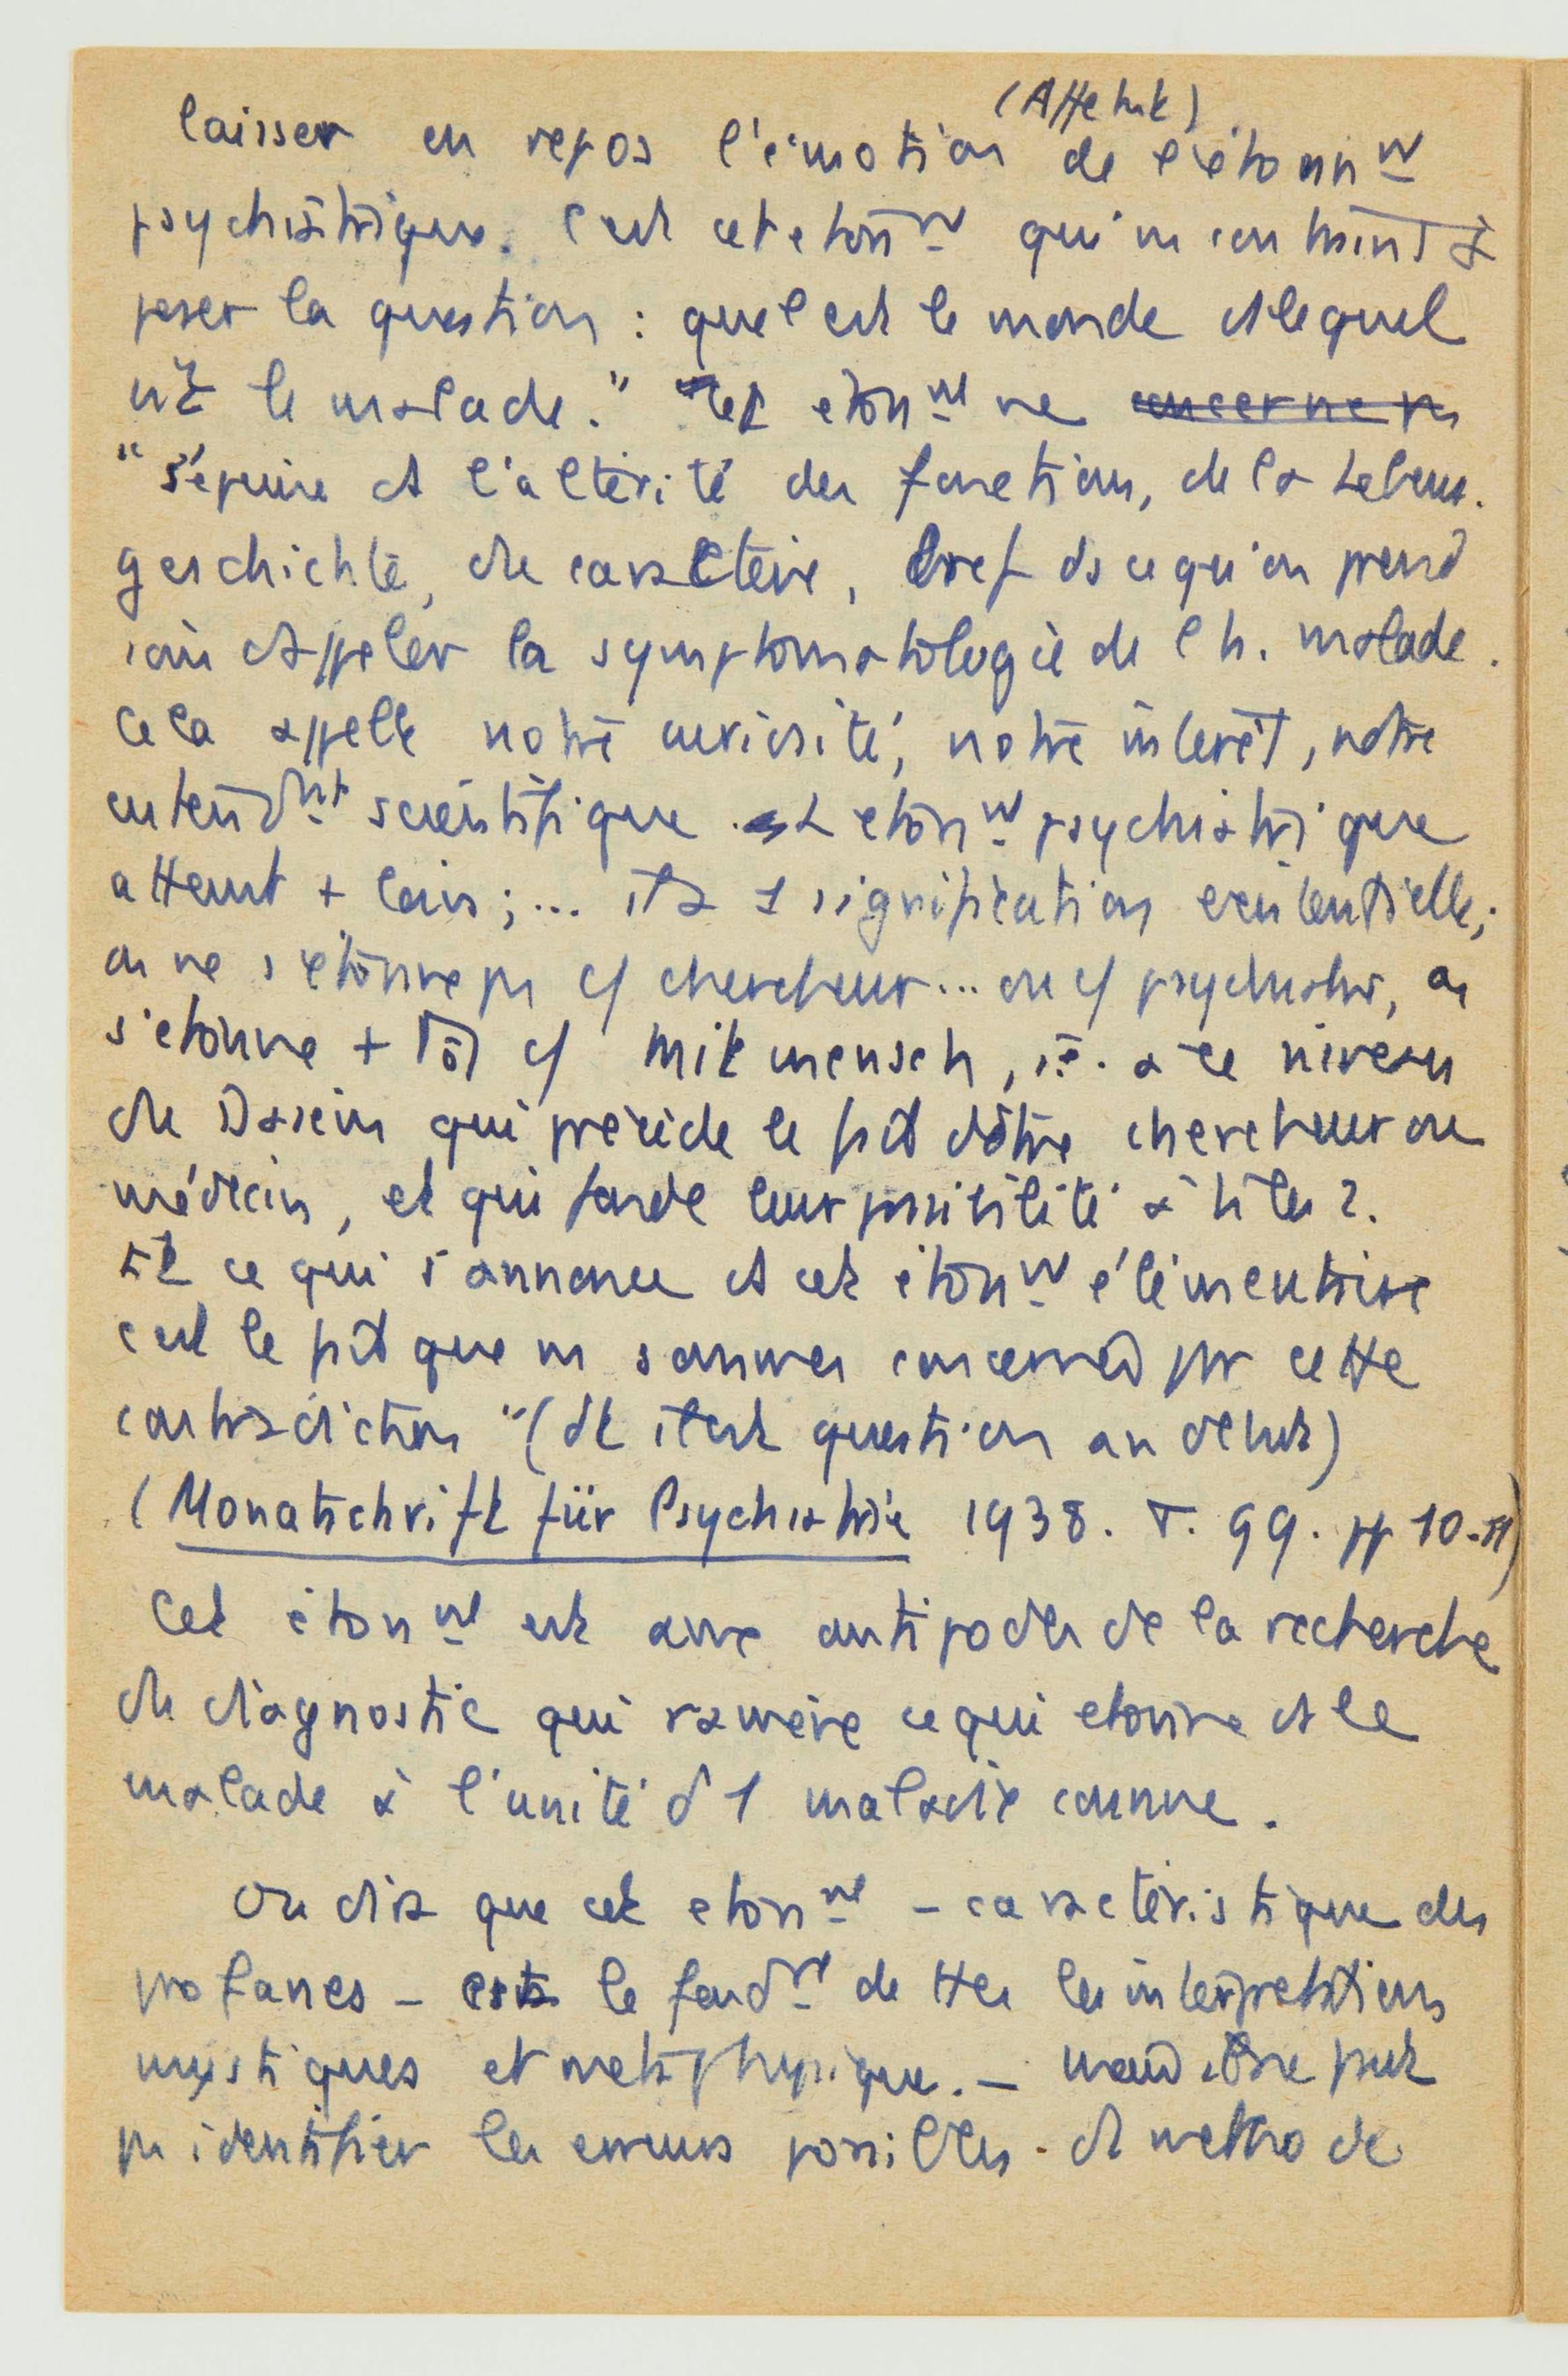 (Affekt)
laisser en repos l'émotion de l'étonnt
psychiatrique. C'est cet étonnt qui ns contraint à
poser la question : quel est le monde ds lequel
vit le malade." Cet étonnt ne concerne pas
"s'épuise ds l'altérité des fonctions, de la Lebens-
geschichte, du caractère, bref ds ce qu'on prend
appeler la symptomatologie de l'h. malade.
Cela appelle notre curiosité, notre intérêt, notre
entendnt scientifique. L'étonnt psychiatrique
atteint + loin ; ... il a 1 signification existentielle ;
on ne s'étonne pas c/ chercheur... ou c/ psychiatre, on
s'étonne + tôt c/ Mitmensch, i.e. à ce niveau
du Dasein qui précède le fait d'être chercheur ou
médecin, et qui fonde leur possibilité à ts les 2.
Et ce qui s'annonce ds cet étonnt élémentaire
c'est le fait que ns sommes concernés par cette
contradiction" (dt il est question au début)
(Monatschrift für Psychiatrie 1938. T. 99. pp 10-11)
Cet étonnt est aux antipodes de la recherche
du diagnostic qui ramène ce qui étonne ds le
malade à l'unité d'1 maladie connue.
On dira que cet étonnt - caractéristique des
profanes - est le fondt de ttes les interprétations
mystiques et métaphysique. - peut
pas identifier les erreurs possibles. ds méthode